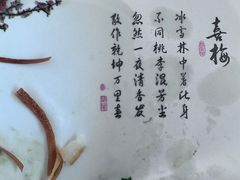 喜梅
冰雪林中著此身
不同桃李混芳尘
忽然一夜清香发
散作乾坤万里春